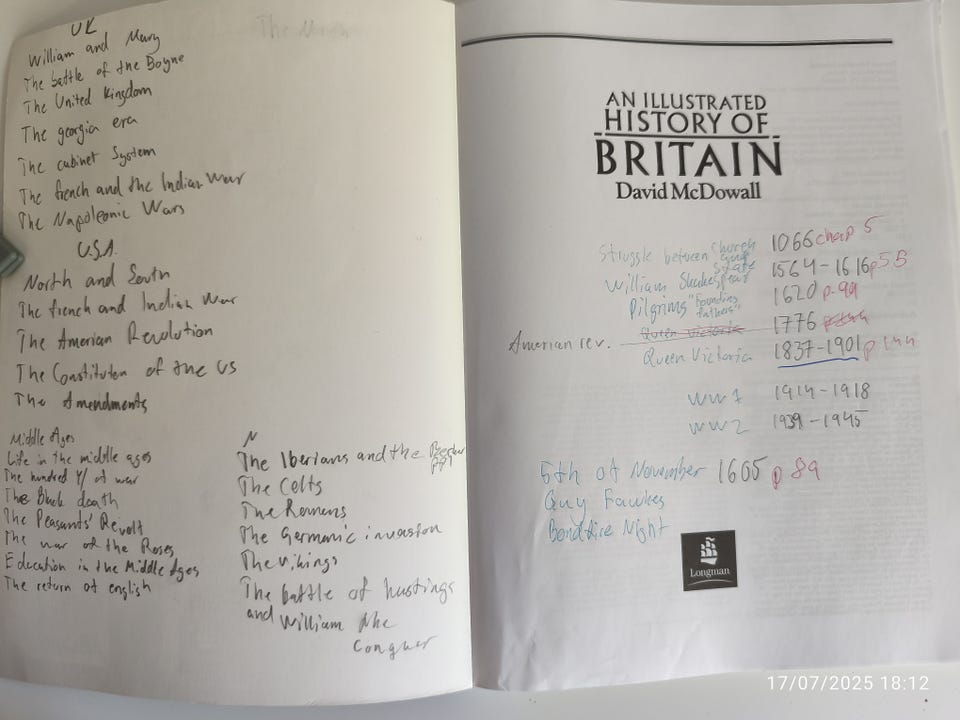 UK
William and Mary
The battle of the Boyne
The United Kingdom
The georgia era
The cabinet System
The french and the Indian War
The Napoleonic Wars
U.S.A.
North and South
The french and Indian War
The American Revolution
The Constituten of the US
The Amendments
Middle Ages
Life in the middle ages
The hundred of war
The Black death
The Peasants' Revolt
The war of the Roses
Education in the Middle Ages
The return of english
N
The Iberians and the
The Celts
The Romans
The Germanic invasion
The vikings
The battle of hustings
and William the
Conquer
AN ILLUSTRATED
HISTORY OF
BRITAIN
David McDowall
Struggle between Church and State 1066 chap 5
William Shakespear 1564-1616 p 5B
Pilgrims "Founding fathers" 1620 p. 99
Queen Victoria
American rev. 1776
Queen Victoria 1837-1901 p 144
WW1 1914-1918
WW2 1939-1945
5th of November 1605 p 89
Guy Fawkes
Bondfire Night
Longman
17/07/2025 18:12